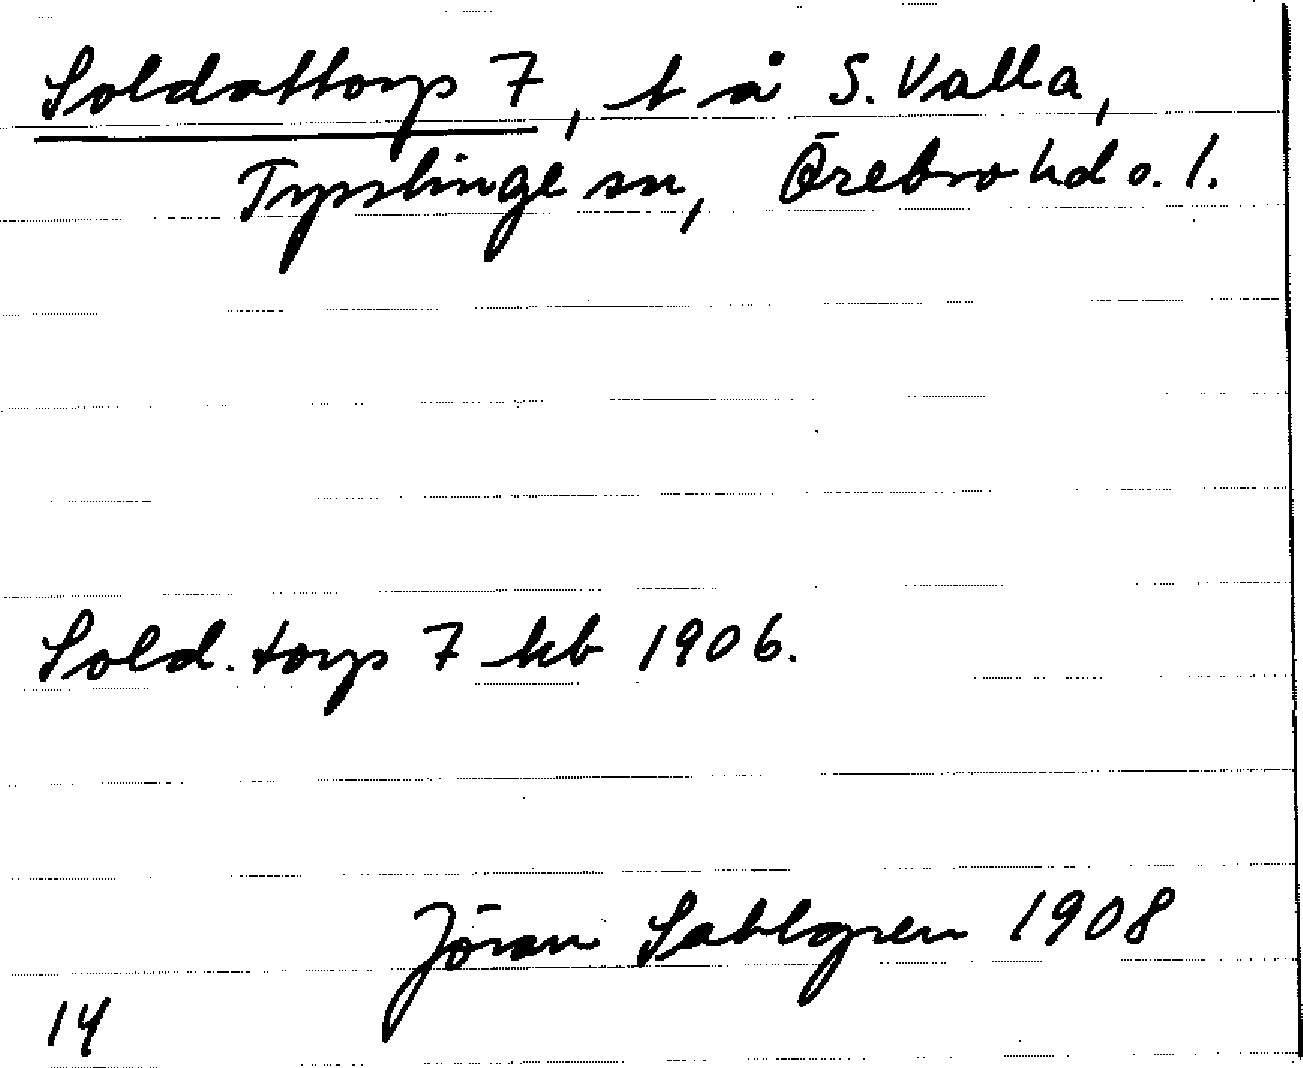 Soldattorp 7, t å S. Valla,
Tysslinge sn, Örebro hd o. l.
Sold. torp 7 kb 1906.
Jöran Sahlgren 1908
14